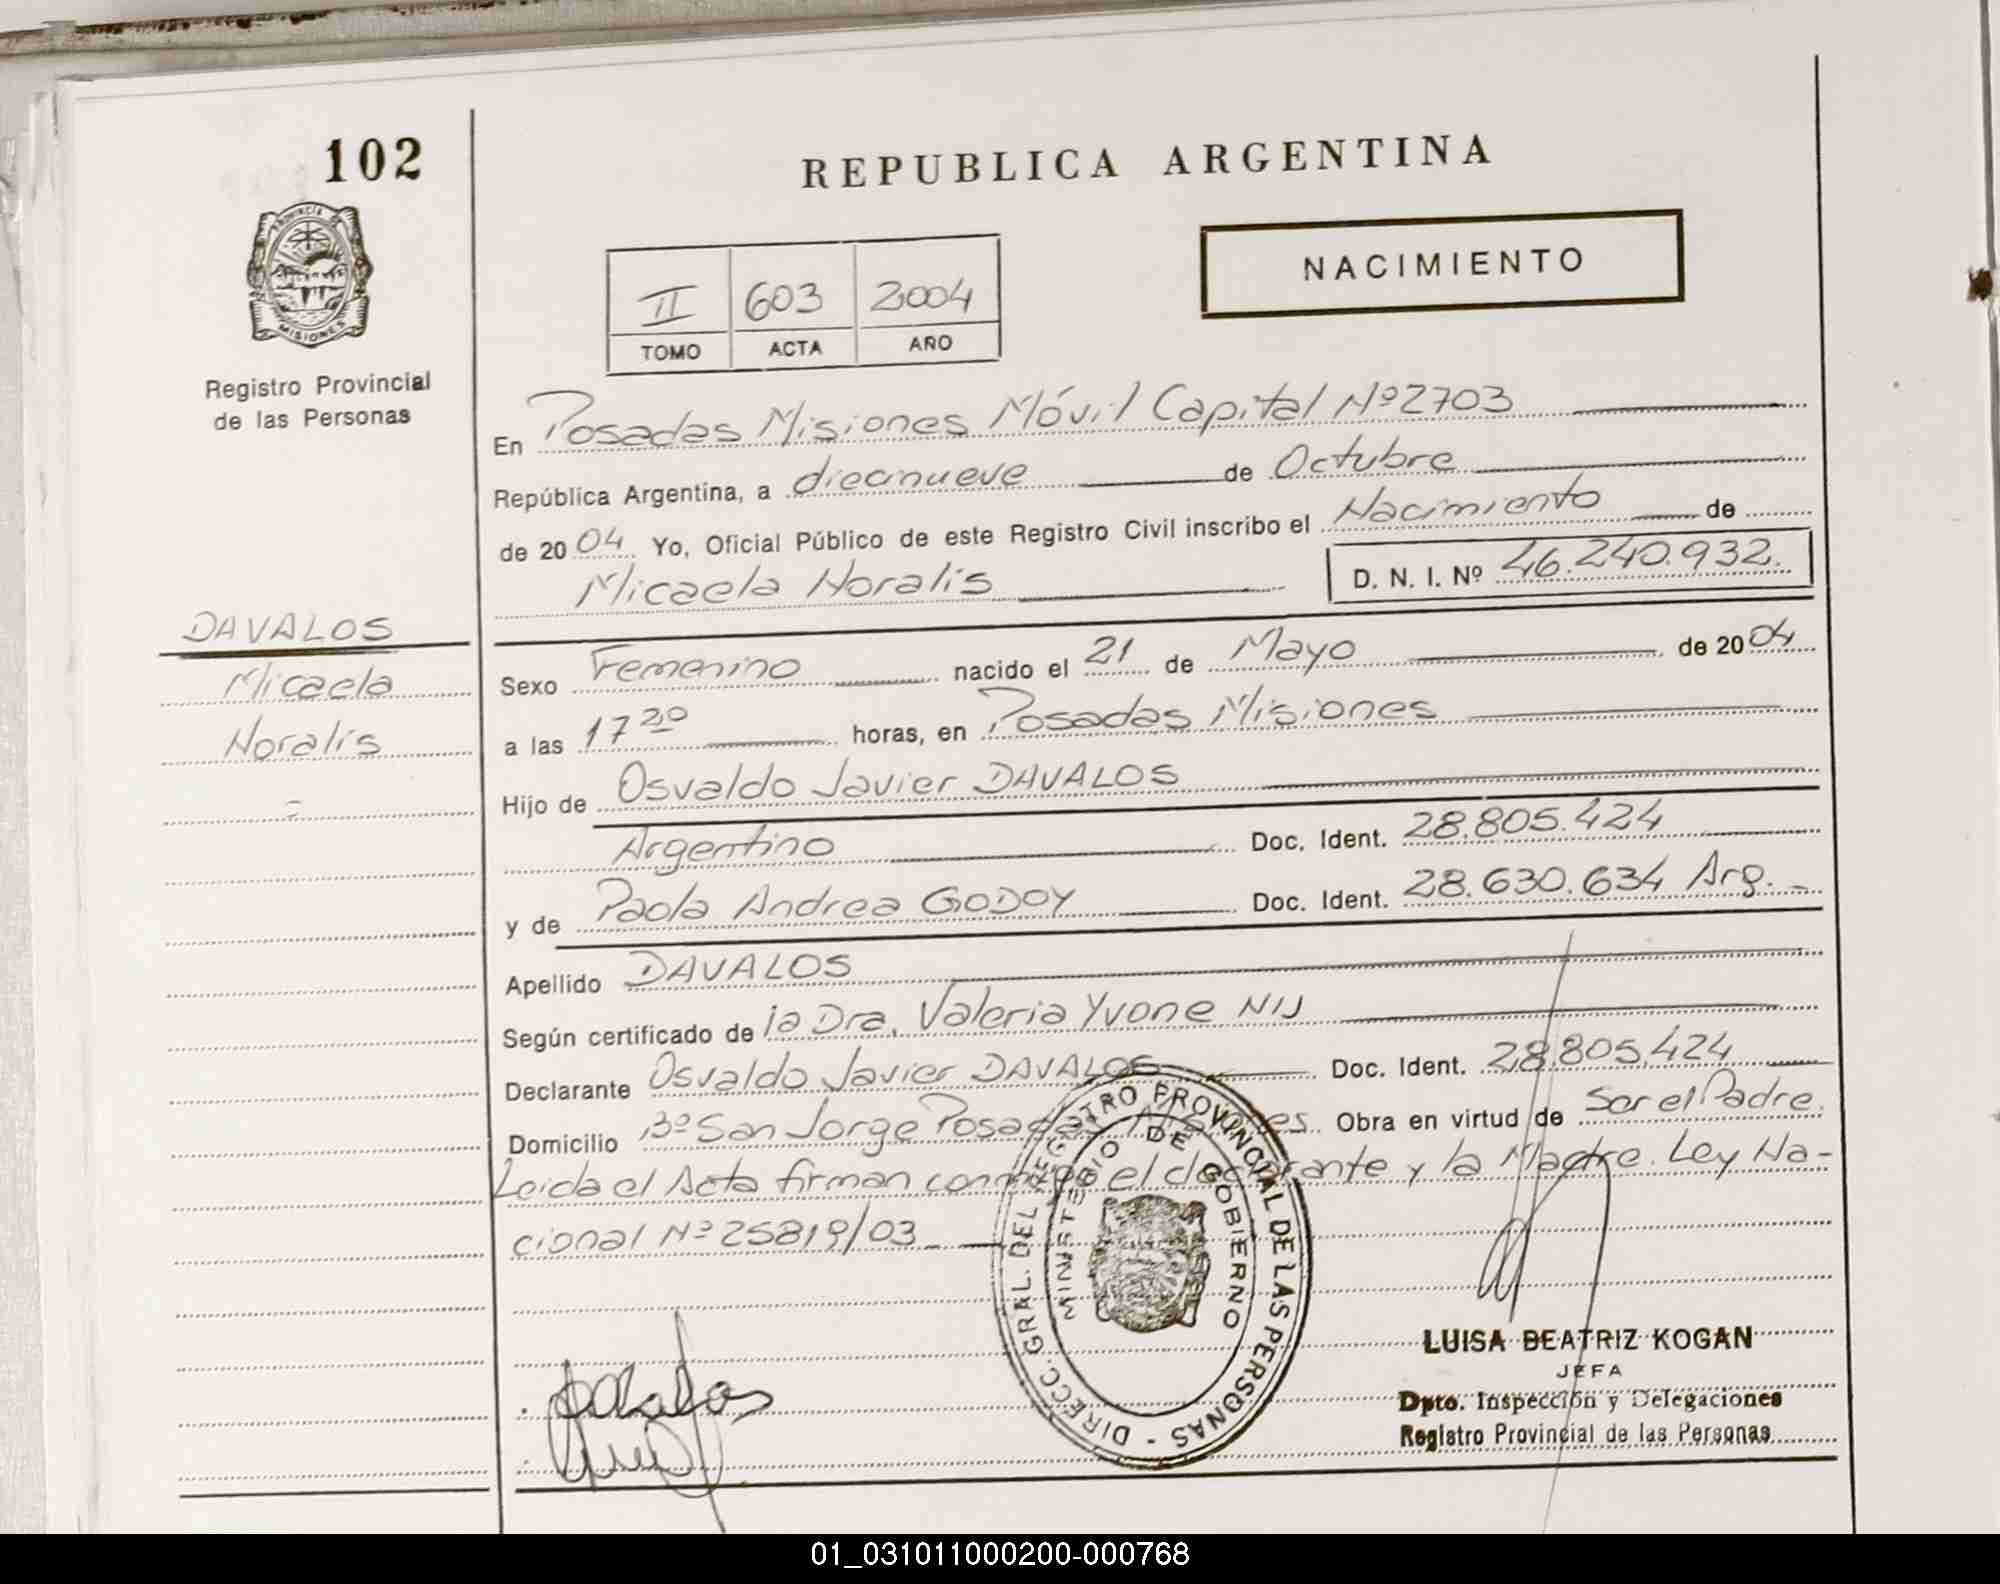 102
REPUBLICA ARGENTINA
PROVINCIA DE
MISIONES
Registro Provincial
de las Personas
II 603 2004
TOMO ACTA AÑO
NACIMIENTO
En Posadas Misiones Móvil Capital Nº2703
República Argentina, a diecinueve de Octubre
de 2004 Yo, Oficial Público de este Registro Civil inscribo el Nacimiento de
Micaela Noralis D. N. I. Nº 46.240.932.
DAVALOS
Micaela
Noralis
Sexo Femenino nacido el 21 de Mayo de 2004
a las 17 20 horas, en Posadas Misiones
Hijo de Osvaldo Javier DAVALOS
Argentino Doc. Ident. 28.805.424
y de Paola Andrea GODOY Doc. Ident. 28.630.634 Arg.
Apellido DAVALOS
Según certificado de la Dra. Valeria Yvone NIJ
Declarante Osvaldo Javier DAVALOS Doc. Ident. 28.805.424
Domicilio Bº San Jorge Posadas Misiones Obra en virtud de Ser el Padre.
Leida el Acta firman conmigo el declarante y la Madre. Ley Na-
cional Nº 25819/03
DIRECC. GRAL. DEL REGISTRO PROVINCIAL DE LAS PERSONAS -
MINISTERIO DE GOBIERNO
LUISA BEATRIZ KOGAN
JEFA
Dpto. Inspección y Delegaciones
Registro Provincial de las Personas
01_031011000200-000768